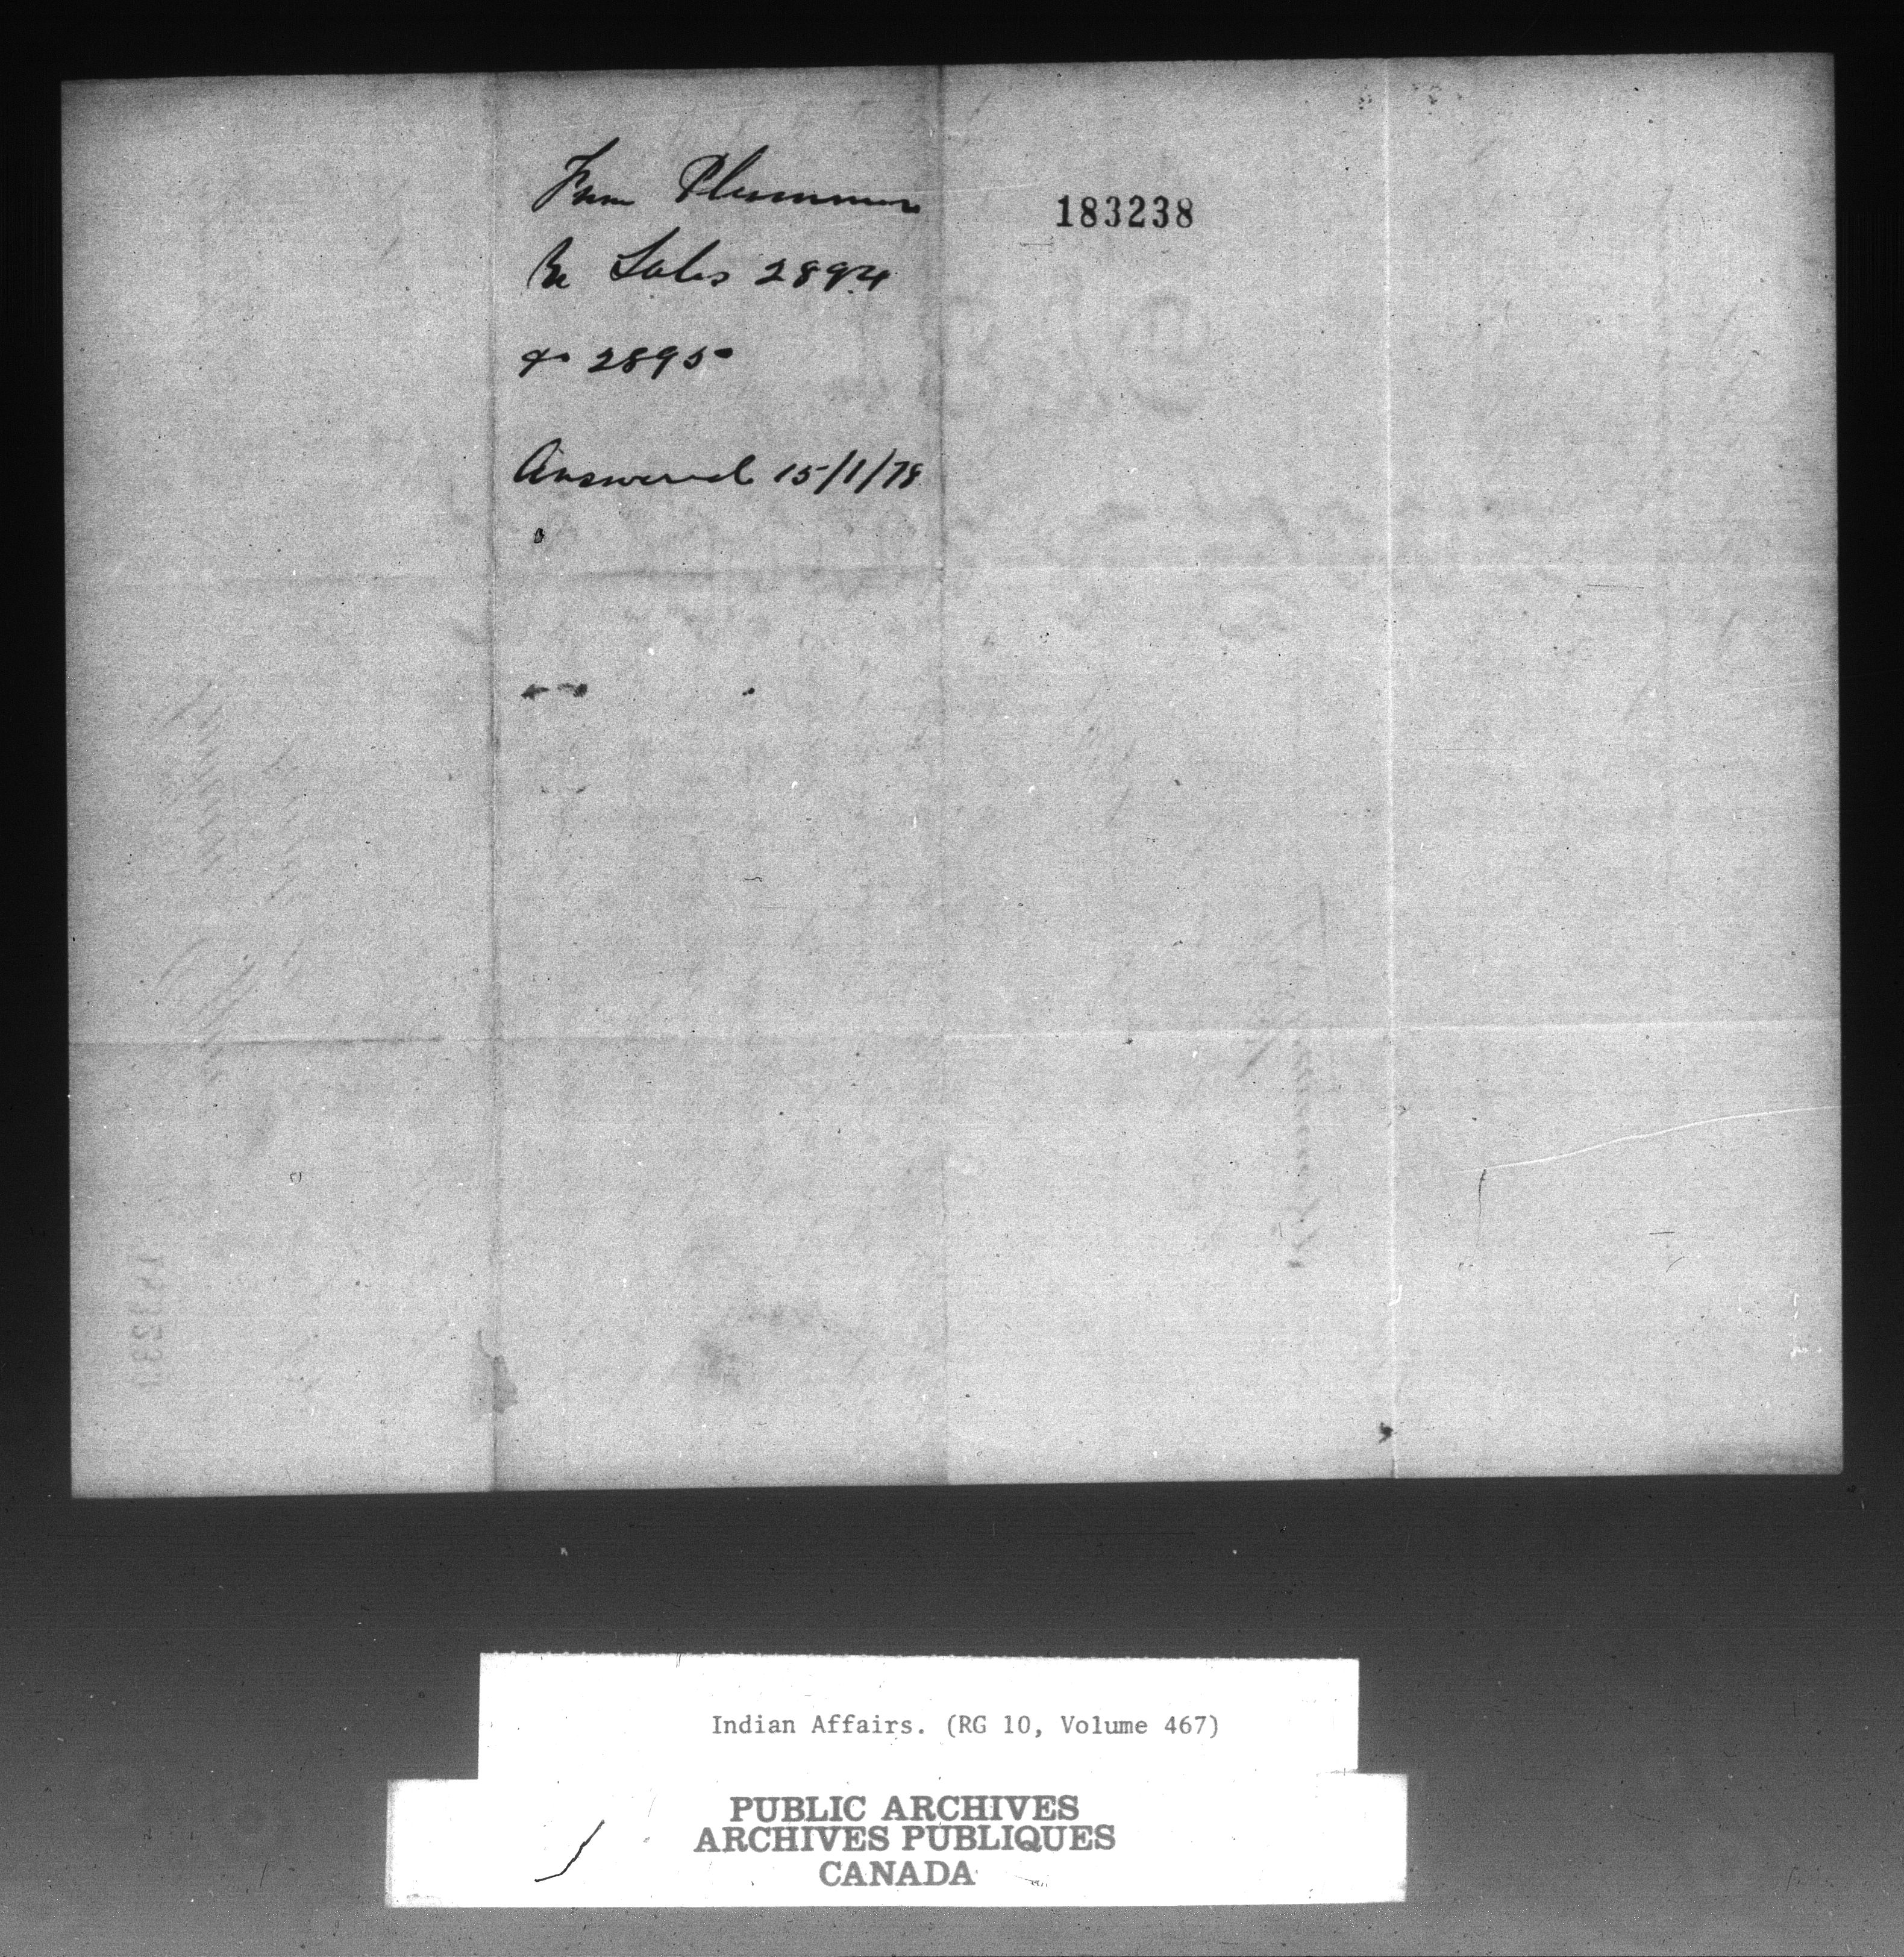 From Plummer
Re Sales 2894
& 2895
Answered 15/1/78
183238
Indian Affairs. (RG 10, Volume 467)
PUBLIC ARCHIVES
ARCHIVES PUBLIQUES
CANADA